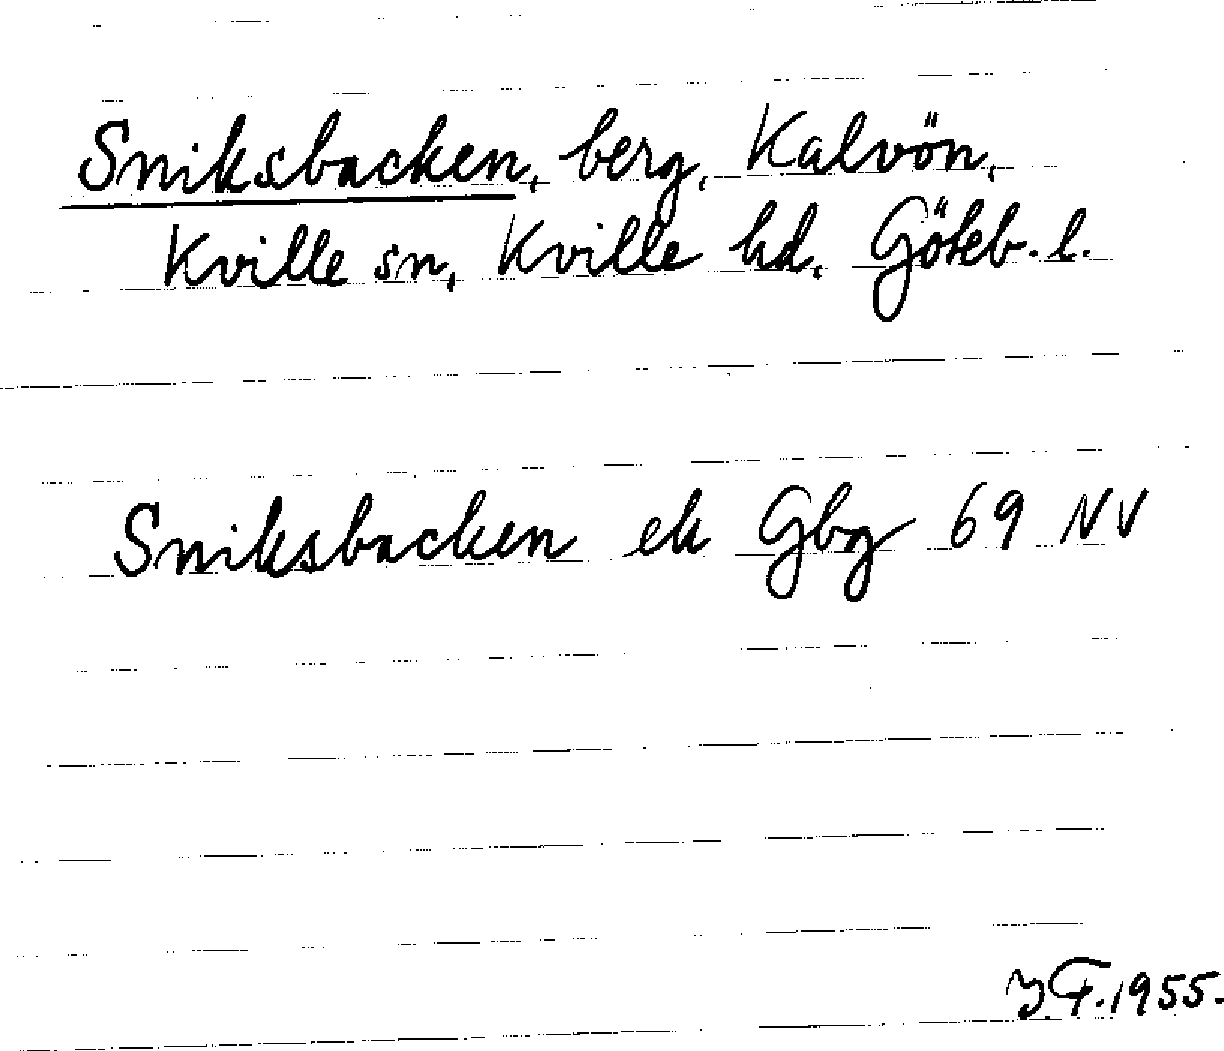 Sniksbacken, berg, Kalvön,
Kville sn, Kville hd, Göteb. l.
Sniksbacken ek Gbg 69 NV
Y.F. 1955.